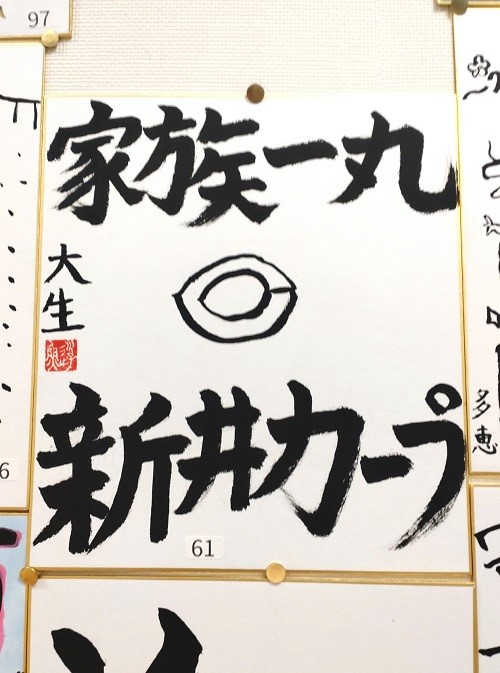 97
家族一丸
大生
新井カープ
61
多恵
6